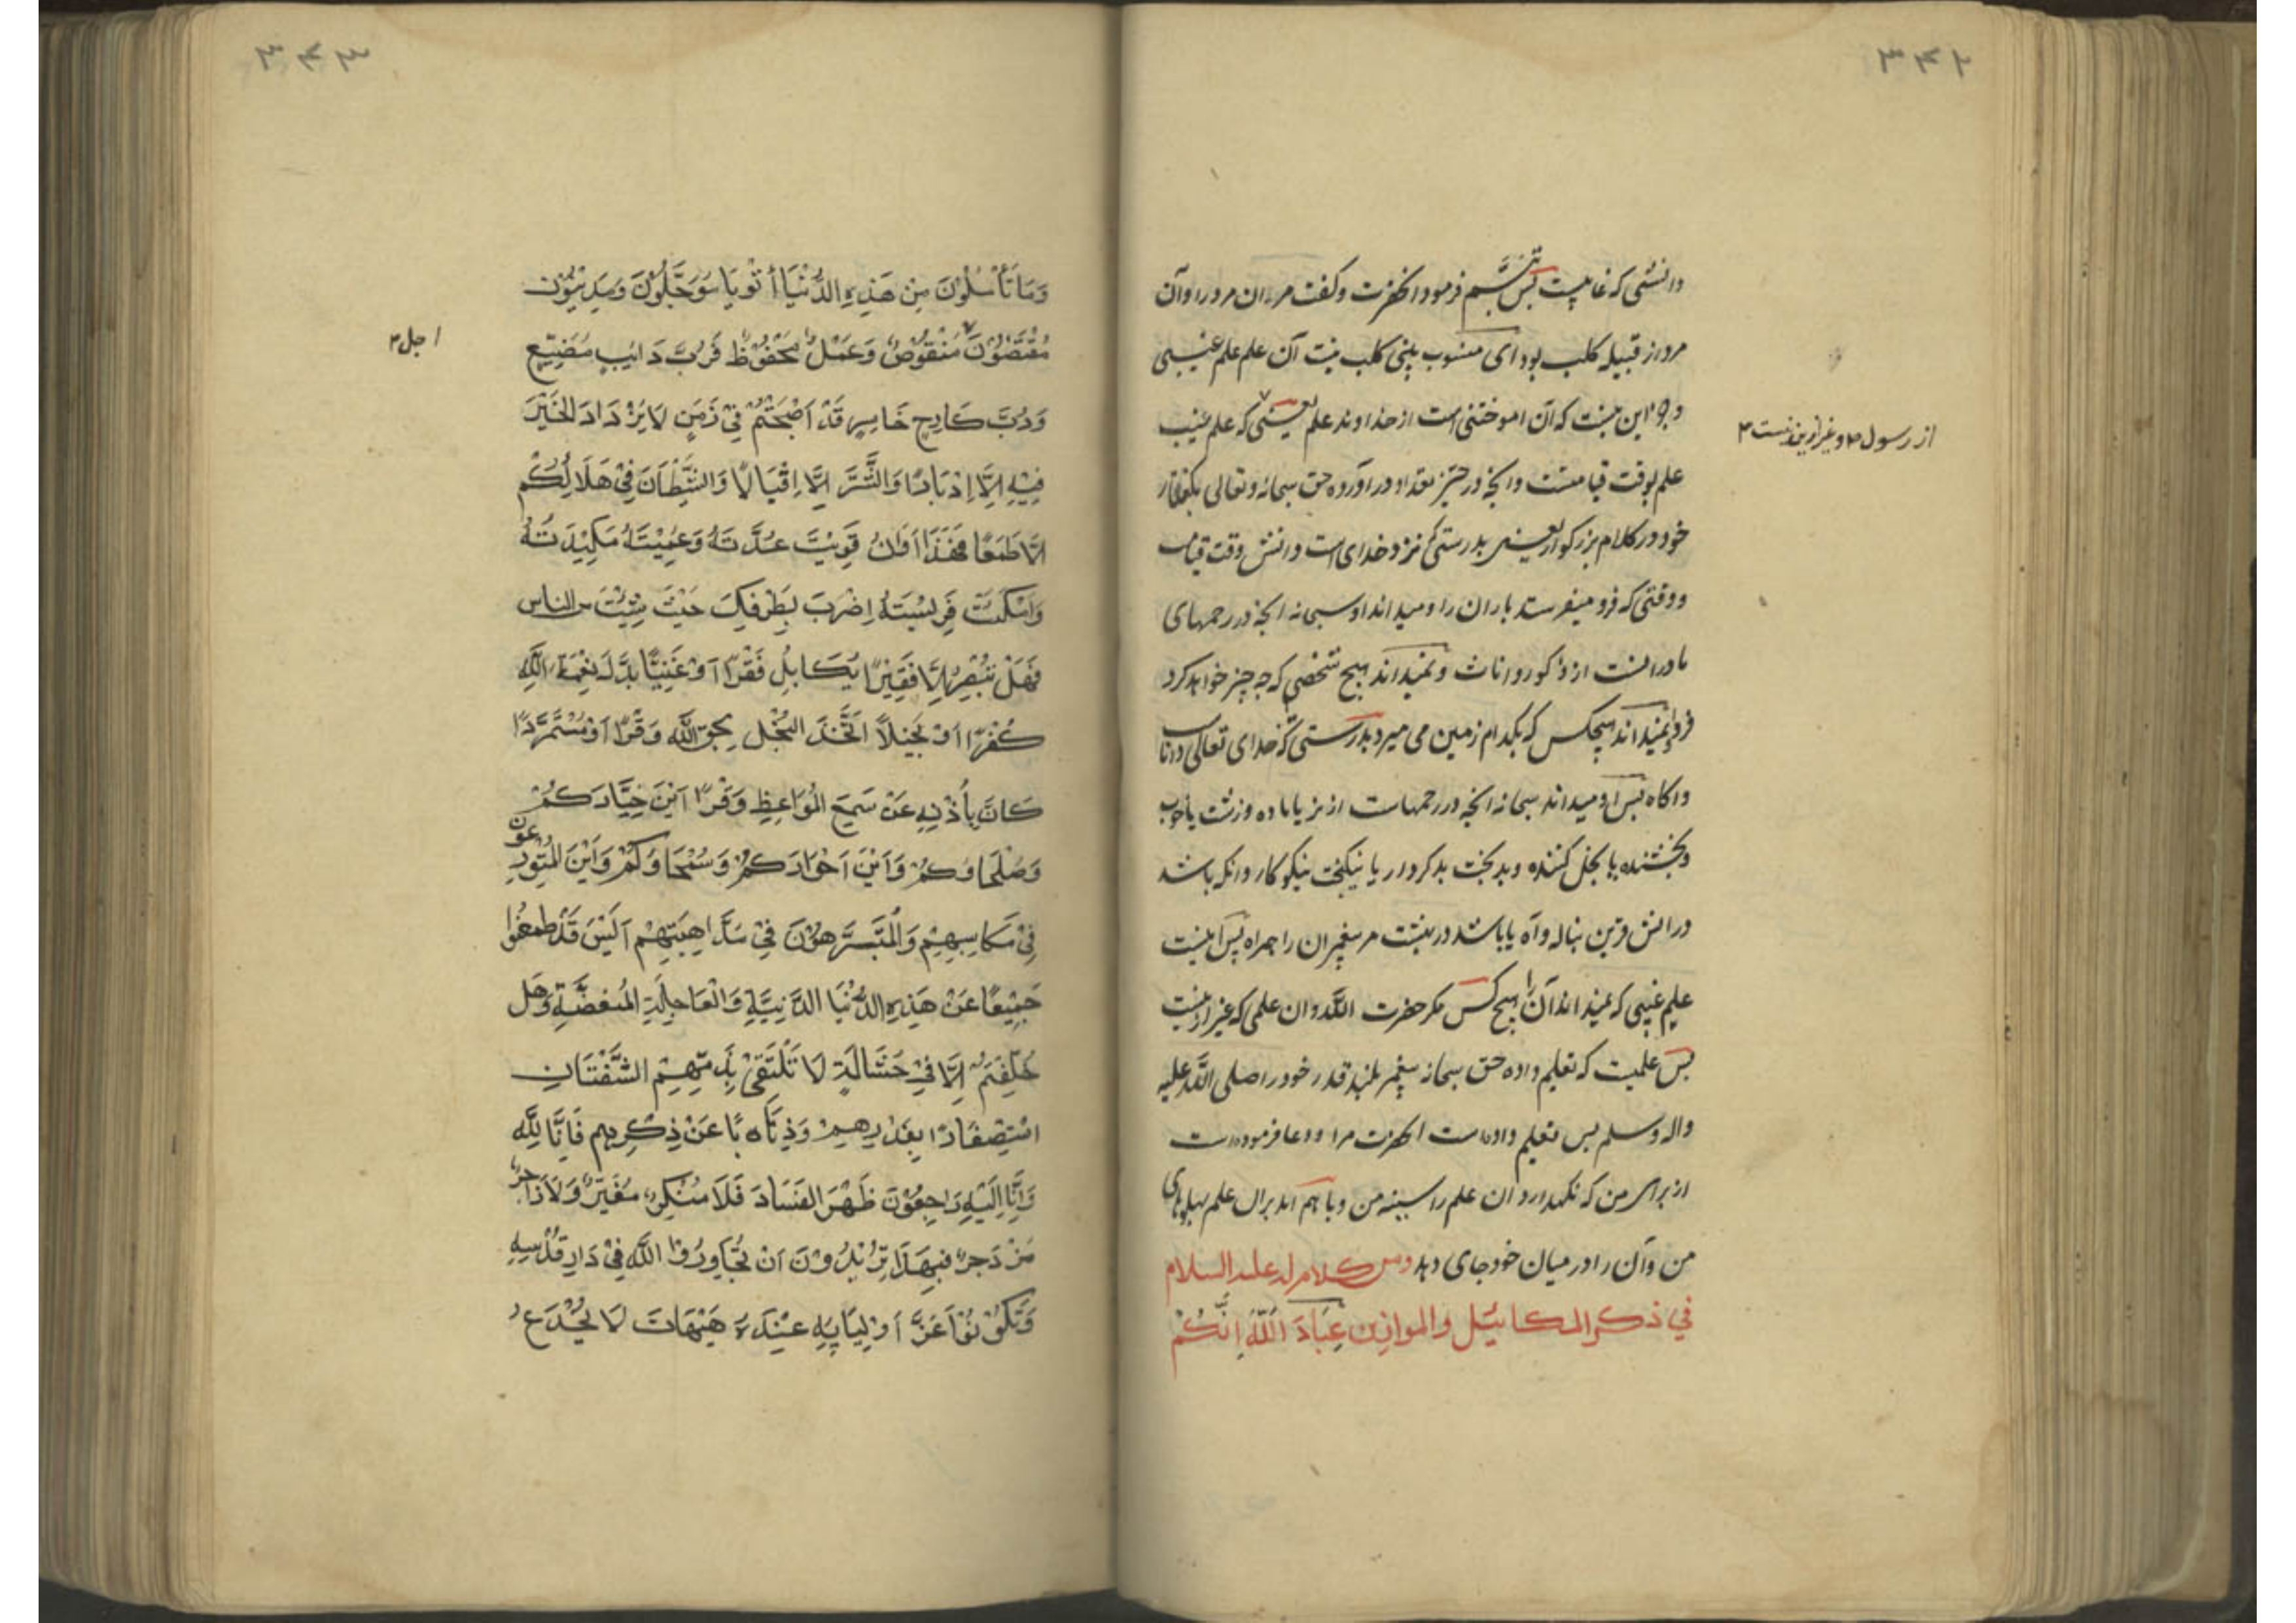 ۳۴۲
دانشی که غایبست پس تبسّم فرمود انحضرت و کفت مر ان مرد را و آن
مرد از قبیله کلب بود ای منسوب ببنی کلب نیست آن علم علم غیبی
و جز این نیست که آن اموختنی است از خداوند علم یعنی که علم غیب
از رسول و غیر ازین نیست
علم بوقت قیامتست و انچه در حیّز تعداد در آورده حق سبحانه و تعالی بکفتار
خود در کلام بزرکوار یعنی بدرستی که نزد خدای است دانش وقت قیامت
و وقتی که فرو میفرستد باران را و میداند او سبحانه انچه در رحمهای
مادرانست از ذکور و اناث و نمیداند هیچ شخصی که چه چیز خواهد کرد
فردا و نمیداند هیچکس که بکدام زمین می میرد بدرستی که خدای تعالی داناست
و اکاه پس او میداند سبحانه انچه در رحمهاست از نر یا ماده و زشت یا خوب
و بخشنده یا بخل کننده و بدبخت بدکردار یا نیکبخت نیکوکار و انکه باشد
در اتش قرین بناله و آه یا باشد در بهشت مر پیغمبران را همراه پس اینست
علم غیبی که نمیداند آن را هیچ کس مکر حضرت اللّه و ان علمی که غیر ازینست
پس علمیست که تعلیم داده حق سبحانه پیغمبر بلند قدر خود را صلی اللّه علیه
واله وسلم پس تعلیم داده است انحضرت مرا و دعا فرموده است
از برای من که نکهدارد ان علم را سینه من و باهم اید بران علم پهلوهای
من و آن را در میان خود جای دهد ومن کلام له علیه السلام
في ذکر المکائیل والموازین عِبَادَ اللّٰهِ اِنَّکُمْ
۳۴۳
وَمَا تَأْسُلُوْنَ مِنْ هَذِهِ الدُّنْيَا أثْوِيَا سُوَجَّلُوْنَ وَمَدِيْنُوْنَ
مُقْتَضَوْنَ مَنْقُوْصٌ وَعَمَلٌ مَحْفُوْظٌ فَرُبَّ دَائبٍ مُضَيِّعٍ
اجل
وَرُبَّ كَادِحٍ خَاسِرٍ قَدْ اَصْبَحْتُمْ فِيْ زَمَنٍ لَا يَزْدَادُ الخَيْرُ
فِيْهِ اِلَّا اِدْبَارًا وَالشَّرُّ اِلَّا اِقْبَالًا وَالشَّيْطَانَ فِيْ هَلَاكِكُمْ
اِلَّا طَمَعًا فَهَذَا اَوَانُ قَوِيَتْ عُدَّتُهُ وَعَمِيْتَهُ مَكِيْدَتُهُ
وَاَمْكَنَتْ فَرِيْسَتَهُ اِضْرِبْ بِطَرْفِكَ حَيْثُ شِئْتَ من الناس
فَهَلْ تُبْصِرُ اِلَّا فَقِيْرًا يُكَابِدُ فَقْرًا اَوْ غَنِيًّا بَدَّلَ نِعْمَةَ اللّٰهِ
كُفْرًا اَوْ بَخِيْلًا اتَّخَذَ البُخْلَ بِحَقِّ اللّٰهِ وَفْرًا اَوْ مُتَمَرَّدًا
كَانَّ بِأُذْنِهِ عَنْ سَمِعَ المَوَاعِظِ وَقْرًا اَيْنَ خِيَارُكُمْ
وَصُلَحَاؤُكُمْ وَاَيْنَ اَحْرَارُكُمْ وَسُمَحَاؤُكُمْ وَاَيْنَ المُتَوَرِّعُون
فِيْ مَكَاسِبِهِمْ وَالمُتَنَزِّهُوْنَ فِيْ مَذَاهِبِهِمْ اَلَيْسَ قَدْ ظعنوا
جَمِيْعًا عَنْ هَذِهِ الدُّنْيَا الدَّنِيَّةِ وَالْعَاجِلَةِ المُنغِّصَةِ وَهل
خُلِّفْتُمْ اِلَّا فِيْ حُثَالَةٍ لَا تَلْتَقِيْ بِذَمِّهِمُ الشَّفَتَانِ
اسْتِصْغَارًا بِقَدْرِهِمْ وَذِهَابًا عَنْ ذِكْرِهِم فَاِنَّا لِلّٰهِ
وَاِنَّا اِلَيْهِ رَاجِعُوْنَ ظَهَرَ الفَسَادُ فَلَا مُنْكِرٌ مُغَيِّرٌ وَلَا زاجر
مُزْدَجِرٌ فَبِهَذَا تُرِيْدُوْنَ اَنْ تُجَاوِرُوْا اللّٰهَ فِيْ دَارِ قُدْسِهِ
وَتَكُوْنُوْا اَعَزَّ اَوْلِيَائِهِ عِنْدَهُ هَيْهَاتَ لَا يُخْدَعُ